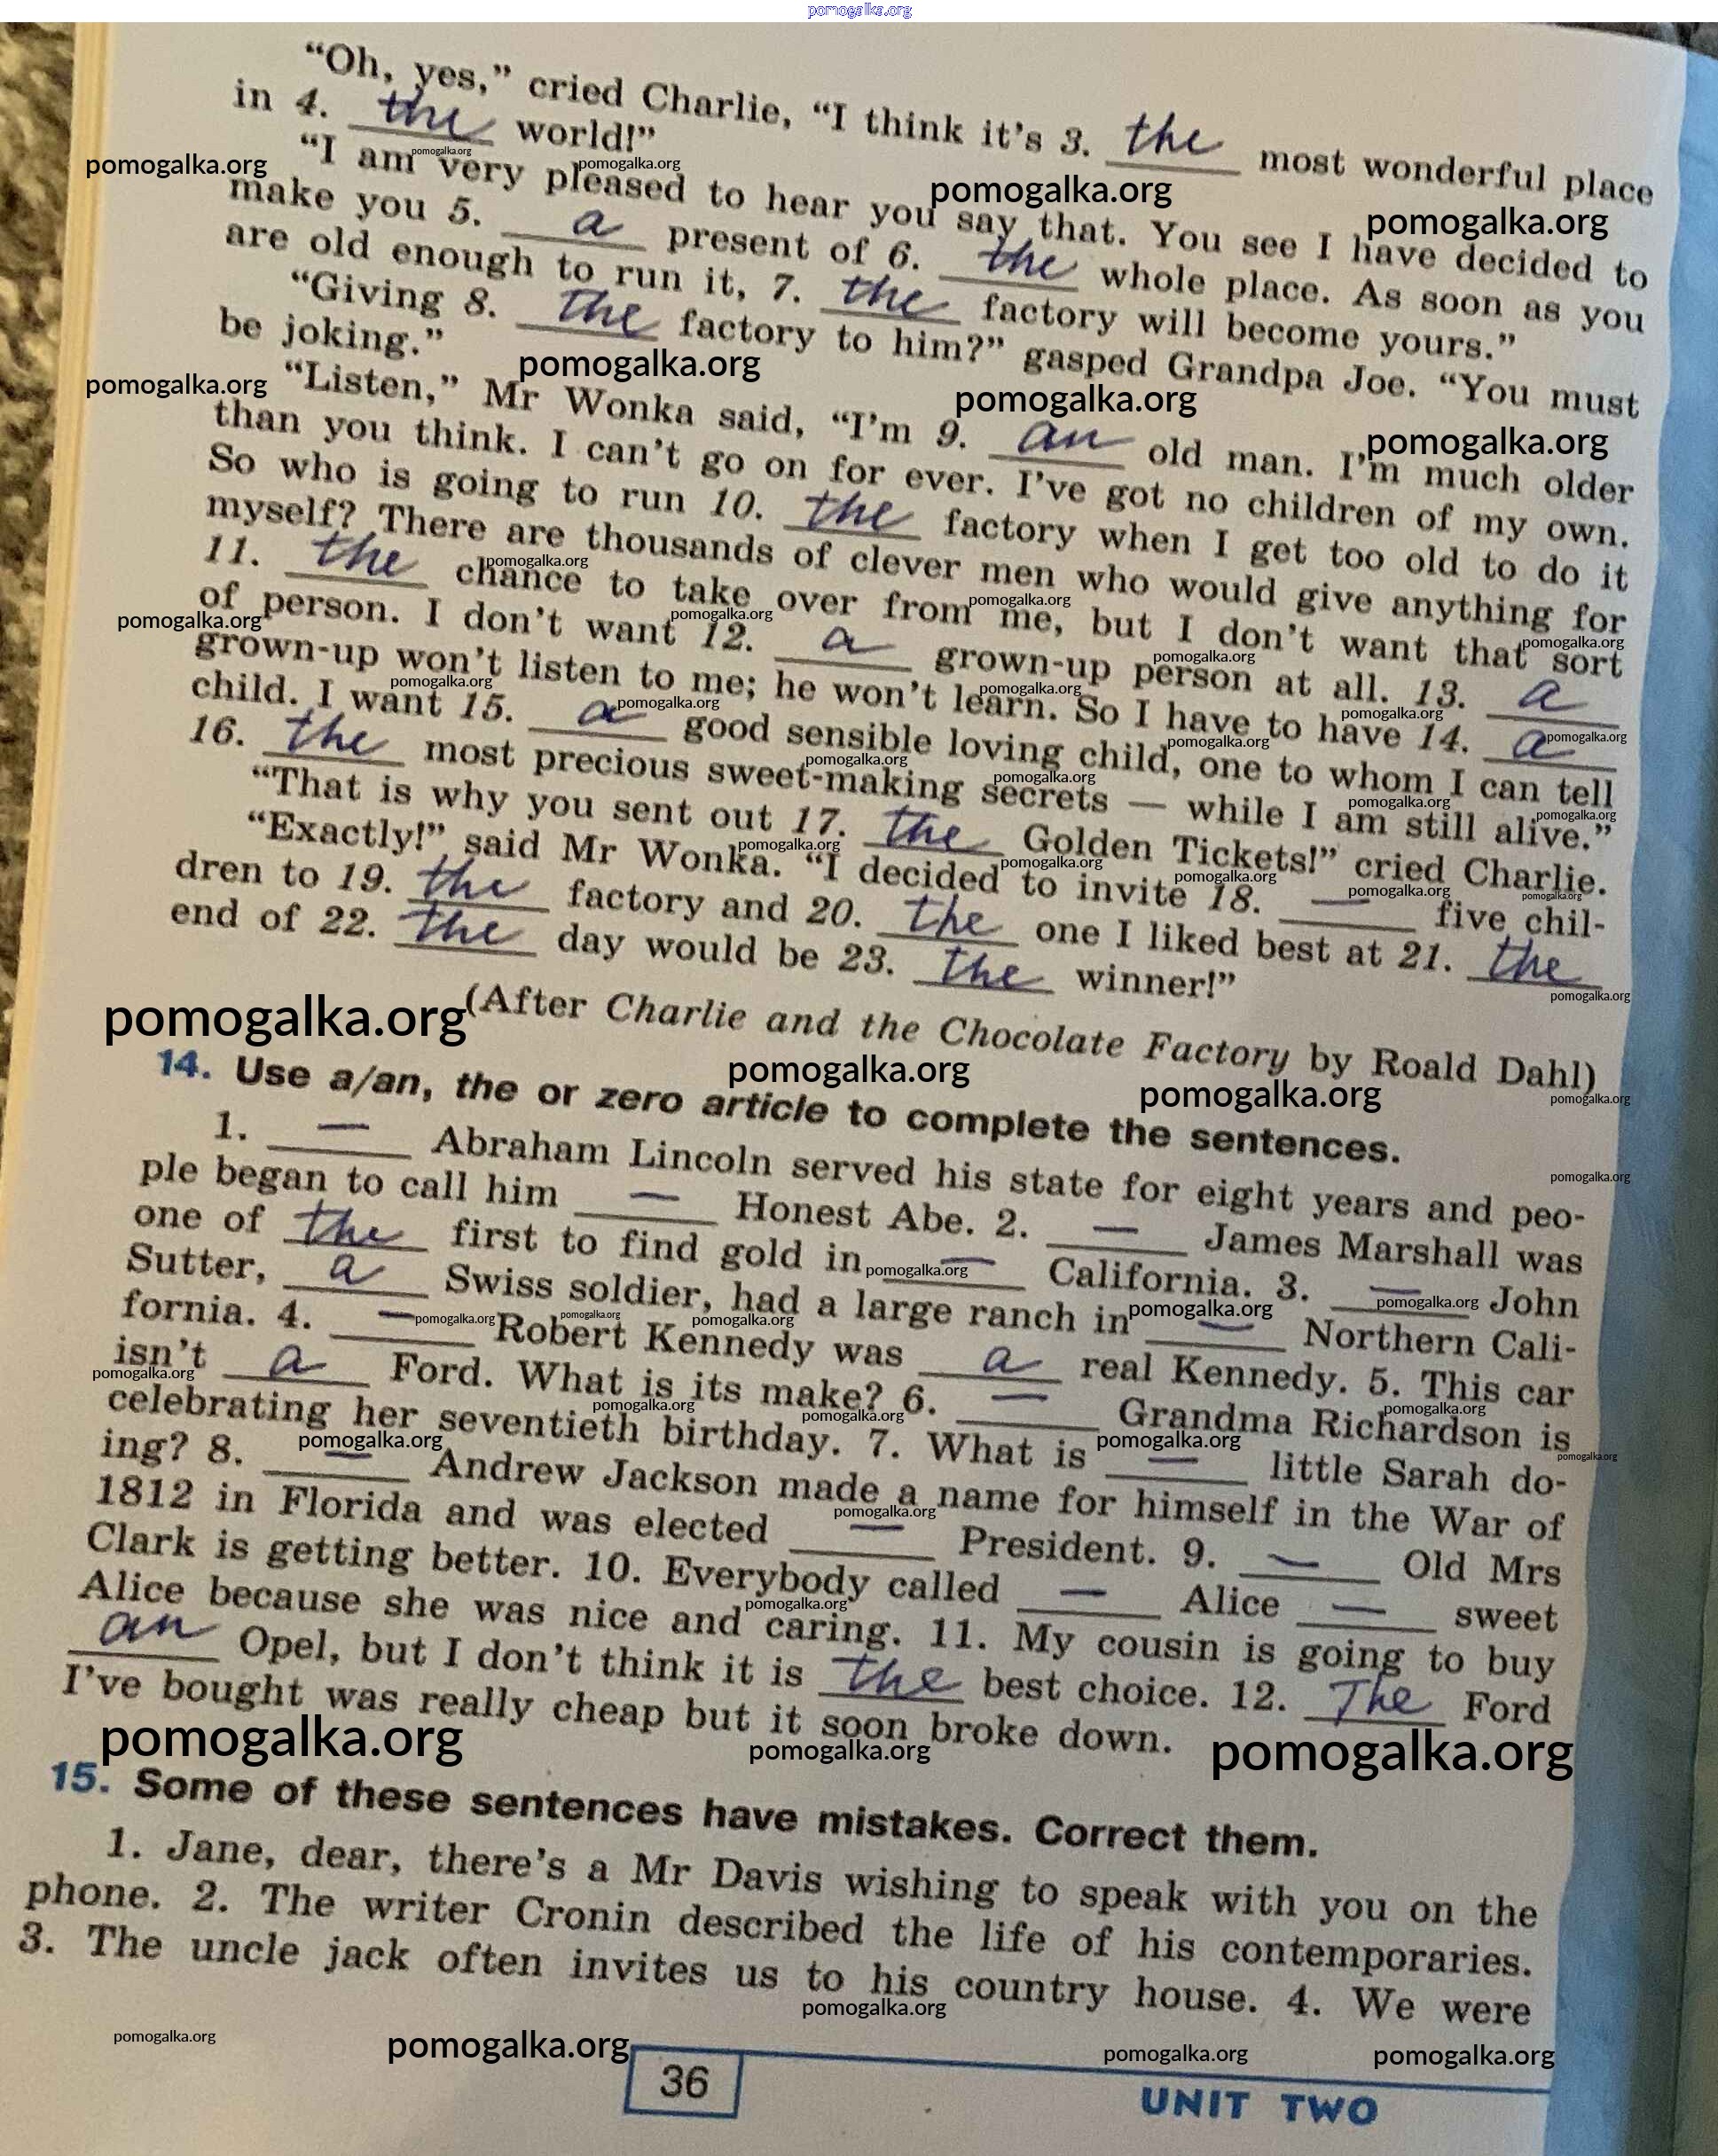 pomogalka.org
“Oh, yes,” cried Charlie, “I think it’s 3. the most wonderful place
in 4. the world!”
“I am very pleased to hear you say that. You see I have decided to
make you 5. a present of 6. the whole place. As soon as you
are old enough to run it, 7. the factory will become yours.”
“Giving 8. the factory to him?” gasped Grandpa Joe. “You must
be joking.”
“Listen,” Mr Wonka said, “I’m 9. an old man. I’m much older
than you think. I can’t go on for ever. I’ve got no children of my own.
So who is going to run 10. the factory when I get too old to do it
myself? There are thousands of clever men who would give anything for
11. the chance to take over from me, but I don’t want that sort
of person. I don’t want 12. a grown-up person at all. 13. a
grown-up won’t listen to me; he won’t learn. So I have to have 14. a
child. I want 15. a good sensible loving child, one to whom I can tell
16. the most precious sweet-making secrets — while I am still alive.”
“That is why you sent out 17. the Golden Tickets!” cried Charlie.
“Exactly!” said Mr Wonka. “I decided to invite 18. — five chil-
dren to 19. the factory and 20. the one I liked best at 21. the
end of 22. the day would be 23. the winner!”
(After Charlie and the Chocolate Factory by Roald Dahl)
14. Use a/an, the or zero article to complete the sentences.
1. — Abraham Lincoln served his state for eight years and peo-
ple began to call him — Honest Abe. 2. — James Marshall was
one of the first to find gold in — California. 3. — John
Sutter, a Swiss soldier, had a large ranch in — Northern Cali-
fornia. 4. — Robert Kennedy was a real Kennedy. 5. This car
isn’t a Ford. What is its make? 6. — Grandma Richardson is
celebrating her seventieth birthday. 7. What is — little Sarah do-
ing? 8. — Andrew Jackson made a name for himself in the War of
1812 in Florida and was elected — President. 9. — Old Mrs
Clark is getting better. 10. Everybody called — Alice — sweet
Alice because she was nice and caring. 11. My cousin is going to buy
an Opel, but I don’t think it is the best choice. 12. The Ford
I’ve bought was really cheap but it soon broke down.
15. Some of these sentences have mistakes. Correct them.
1. Jane, dear, there’s a Mr Davis wishing to speak with you on the
phone. 2. The writer Cronin described the life of his contemporaries.
3. The uncle jack often invites us to his country house. 4. We were
36
UNIT TWO